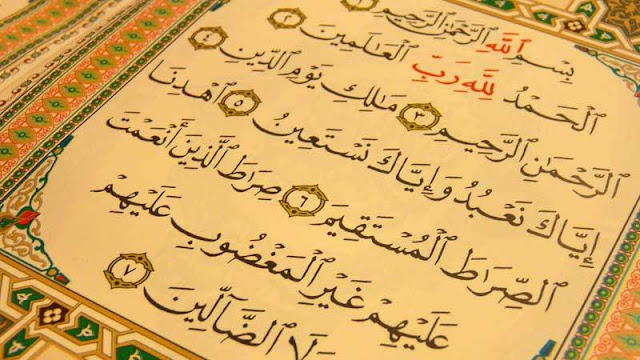 بِسْمِ ٱللَّهِ ٱلرَّحْمَٰنِ ٱلرَّحِيمِ ١
ٱلْحَمْدُ لِلَّهِ رَبِّ ٱلْعَالَمِينَ ٢
ٱلرَّحْمَٰنِ ٱلرَّحِيمِ ٣ مَٰلِكِ يَوْمِ ٱلدِّينِ ٤
إِيَّاكَ نَعْبُدُ وَإِيَّاكَ نَسْتَعِينُ ٥ ٱهْدِنَا
ٱلصِّرَاطَ ٱلْمُسْتَقِيمَ ٦ صِرَاطَ ٱلَّذِينَ أَنْعَمْتَ
عَلَيْهِمْ غَيْرِ ٱلْمَغْضُوبِ عَلَيْهِمْ
وَلَا ٱلضَّآلِّينَ ٧